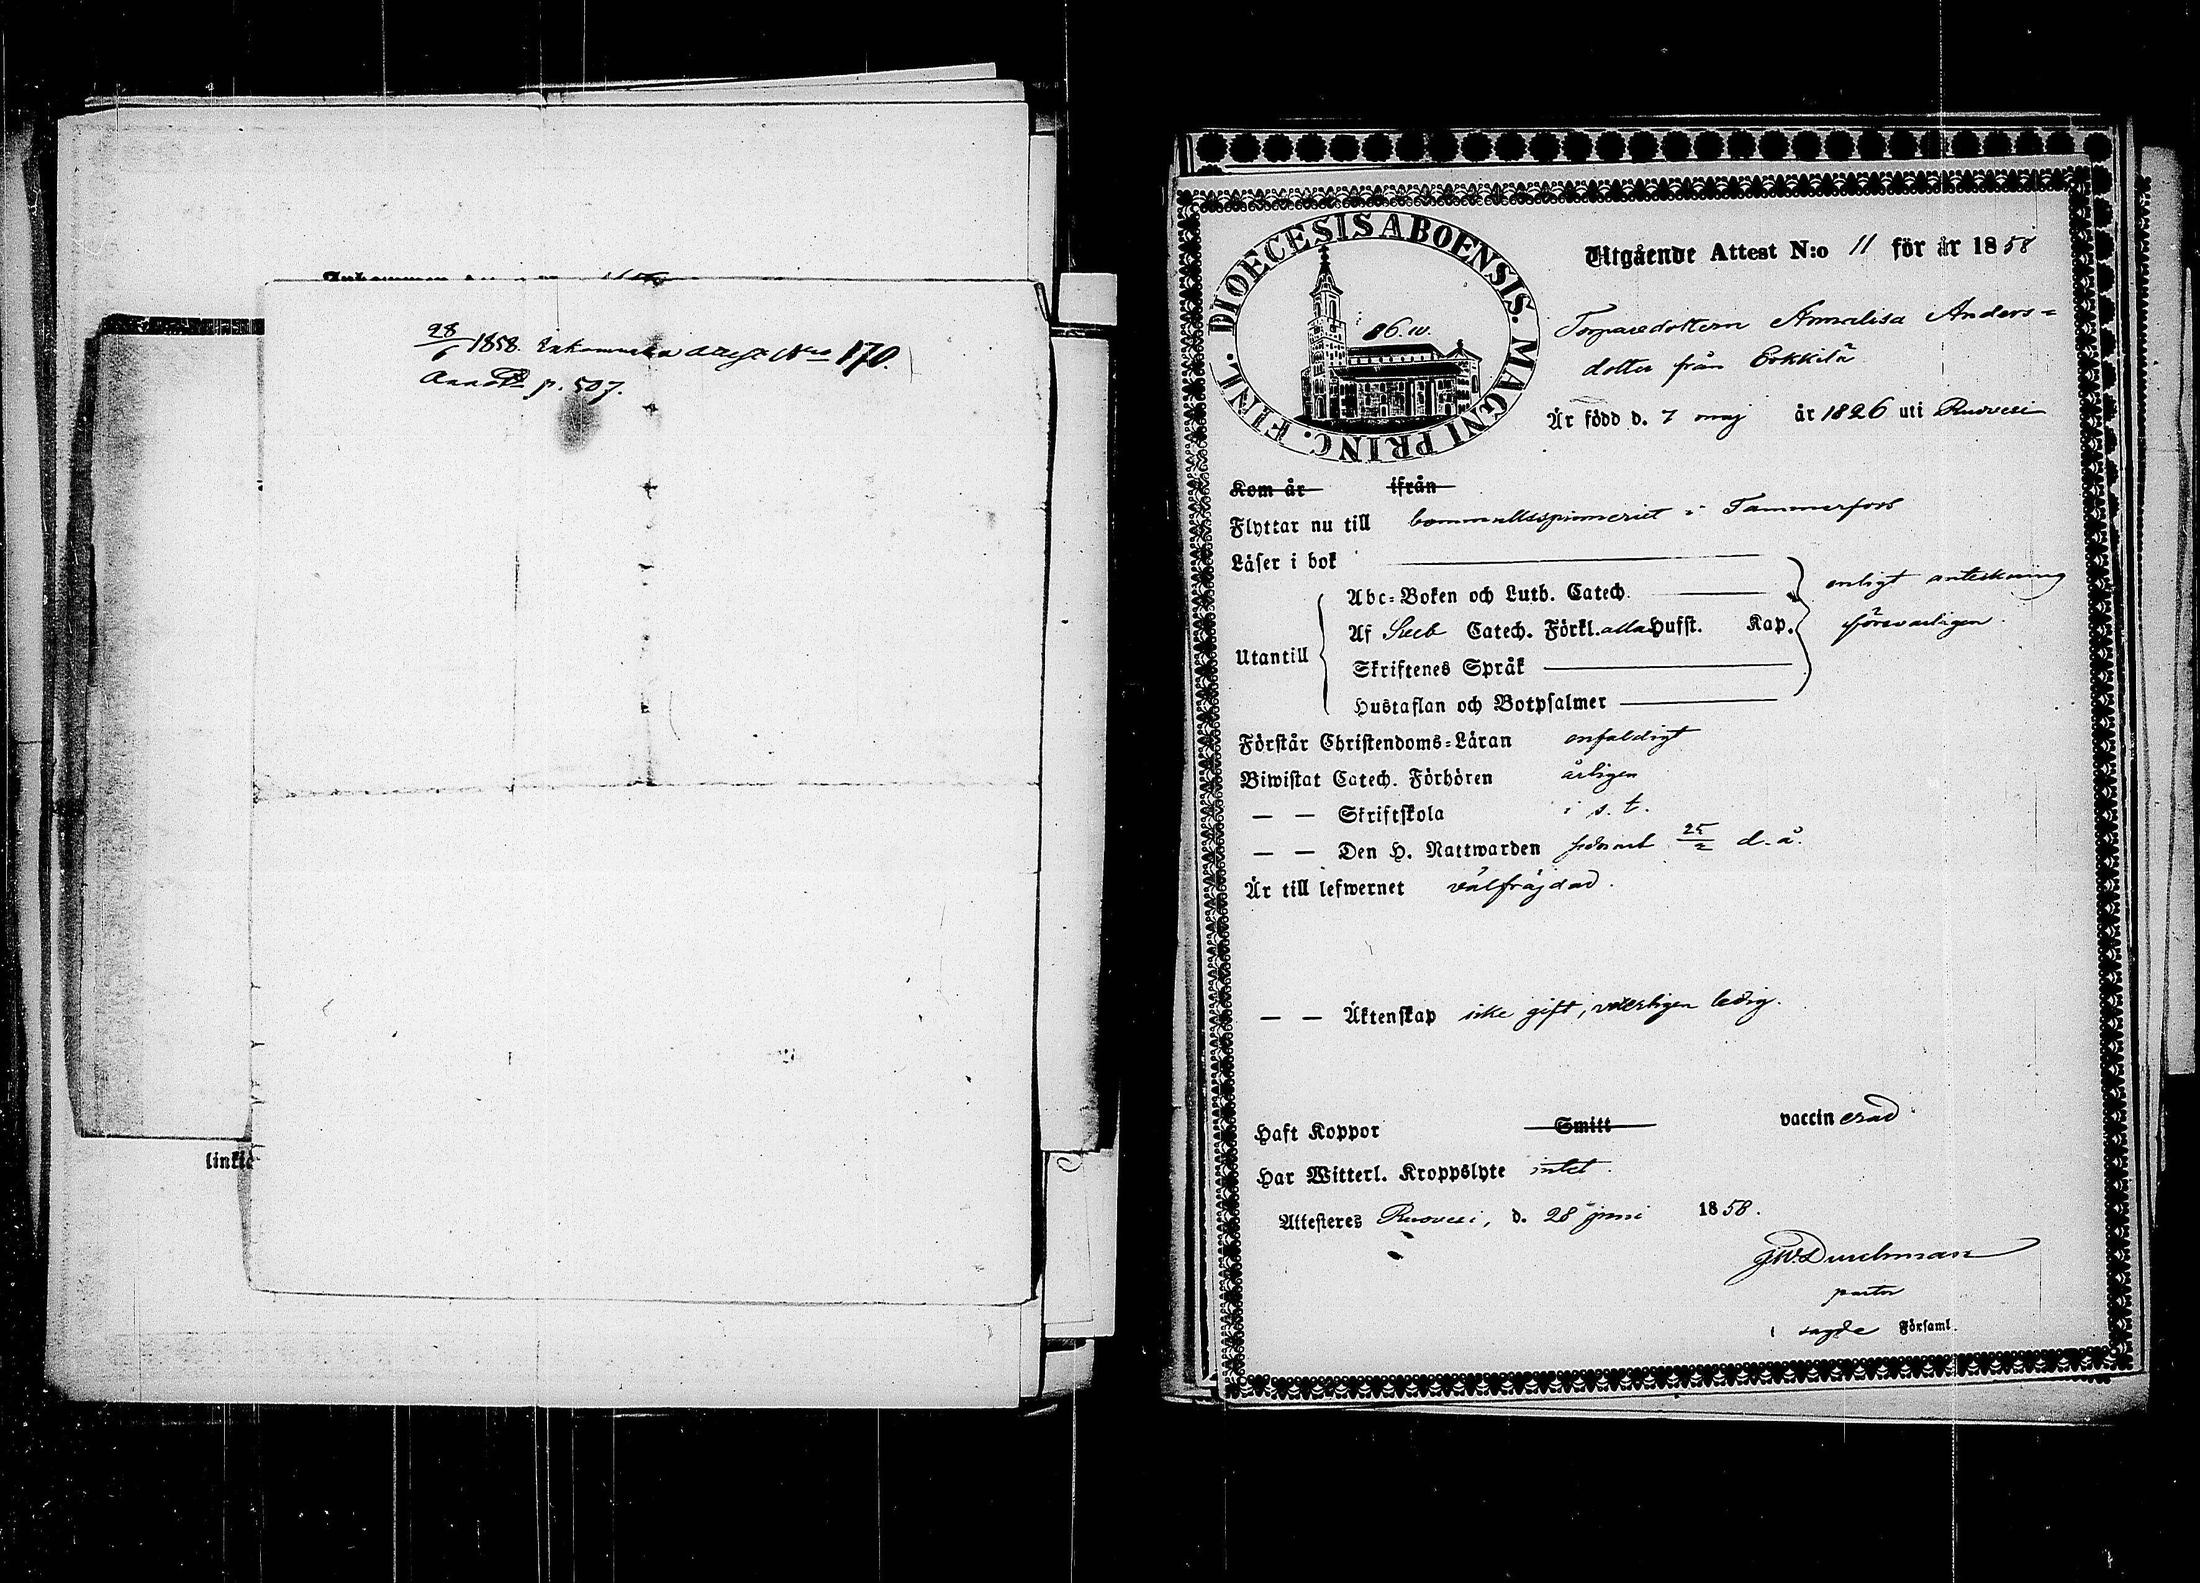 28/6 1858. Inkommen attest Nro 170.
Annot. p. 507.
linkic
DIOECESIS ABOENSIS. MAGNI PRINC. FINL.
86. w.
Utgående Attest N:o 11 för år 1858
Torparedottern Annalisa Anders=
dotter från Erkkilä
Är född d. 7 maj år 1826 uti Ruovesi
Kom år ifrån
Flyttar nu till bommullsspinneriet i Tammerfors
Läser i bok
Abc-Boken och Luth. Catech.
enligt anteckning
Af Sveb Catech. Förkl. alla Hufst. Kap.
försvarligen.
Utantill
Skriftenes Språk
Hustaflan och Botpsalmer
Förstår Christendoms-Läran enfaldigt
Biwistat Catech. Förhören årligen
— — Skriftskola i s. t.
— — Den H. Nattwarden sednast 25/2 d. å.
Är till lefwernet välfräjdad.
— — Äktenskap icke gift, veterligen ledig.
Haft Koppor Smitt vaccinerad
Har Witterl. Kroppslyte intet.
Attesteres Ruovesi, d. 28 juni 1858.
G.W. Durchman
pastor
i sagde Församl.